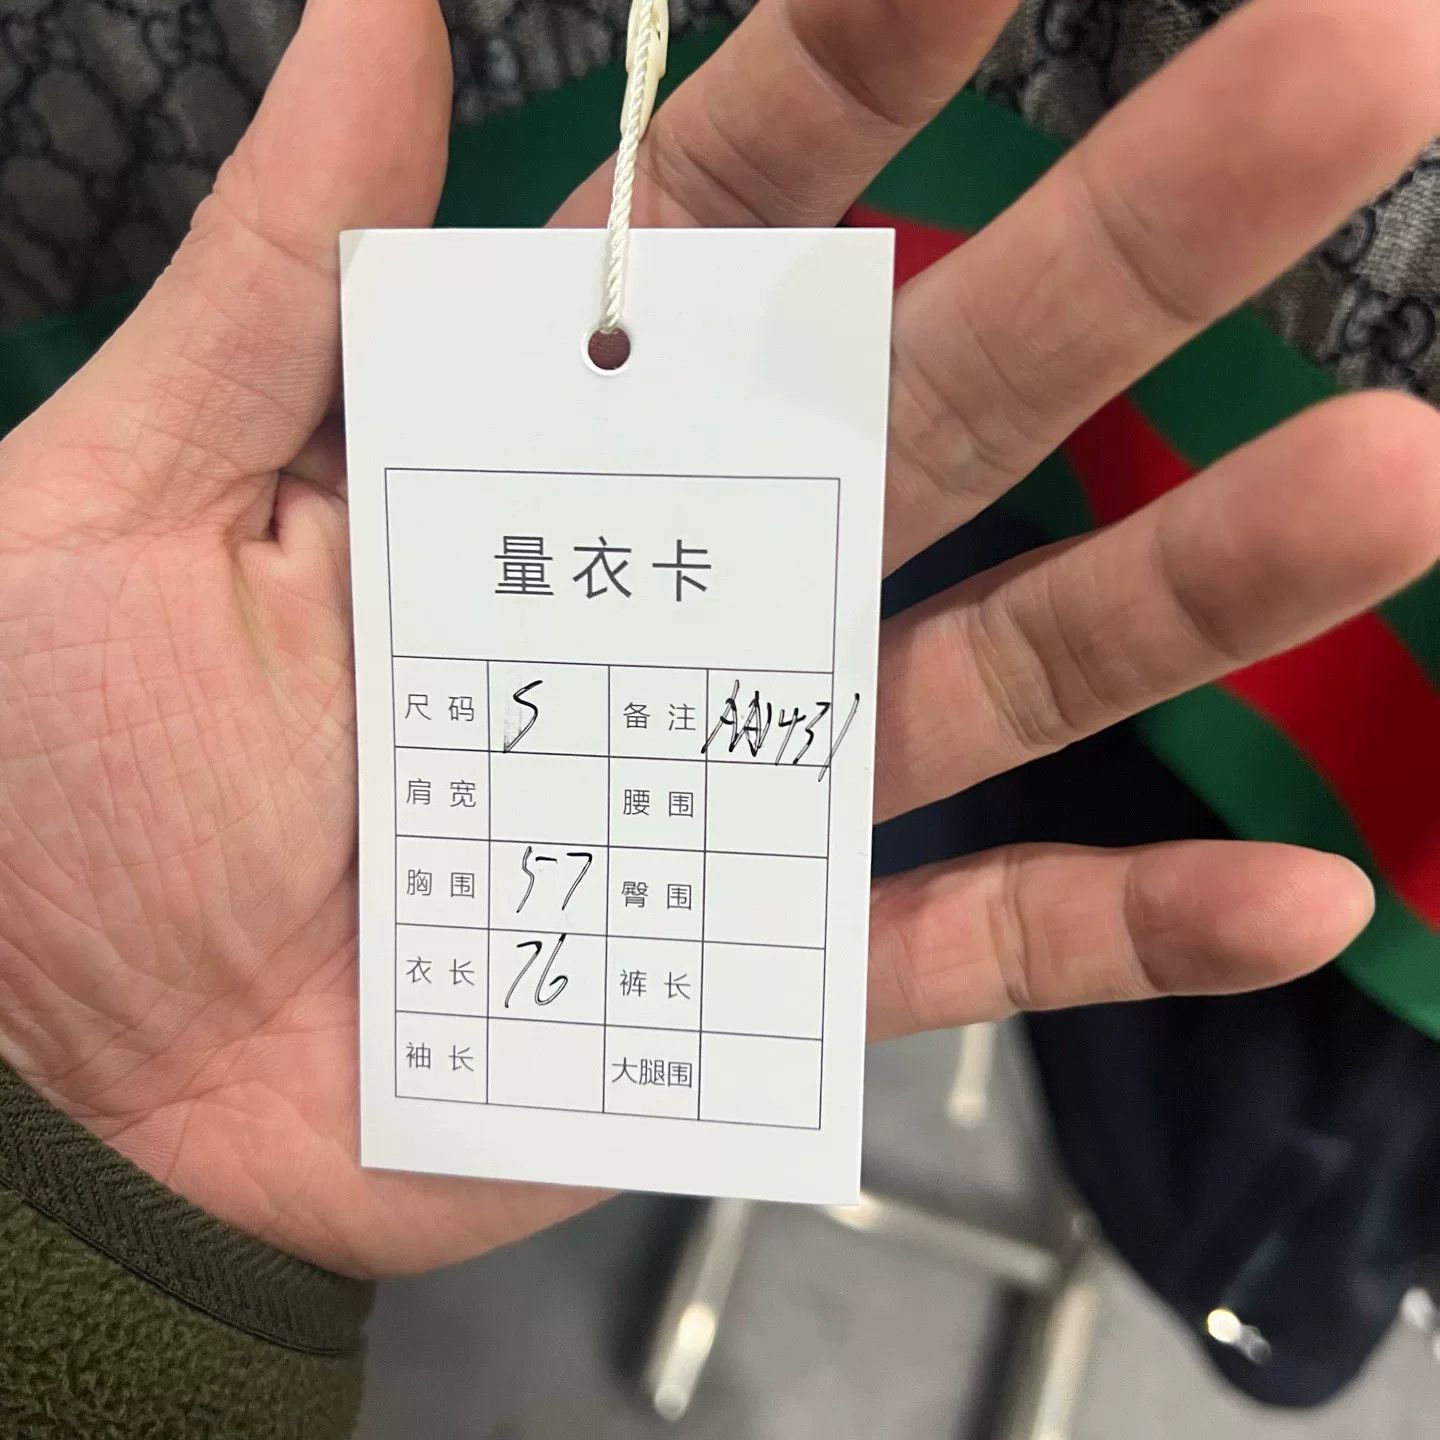 量衣卡
尺码 S 备注 AA1431
肩宽 腰围
胸围 57 臀围
衣长 76 裤长
袖长 大腿围